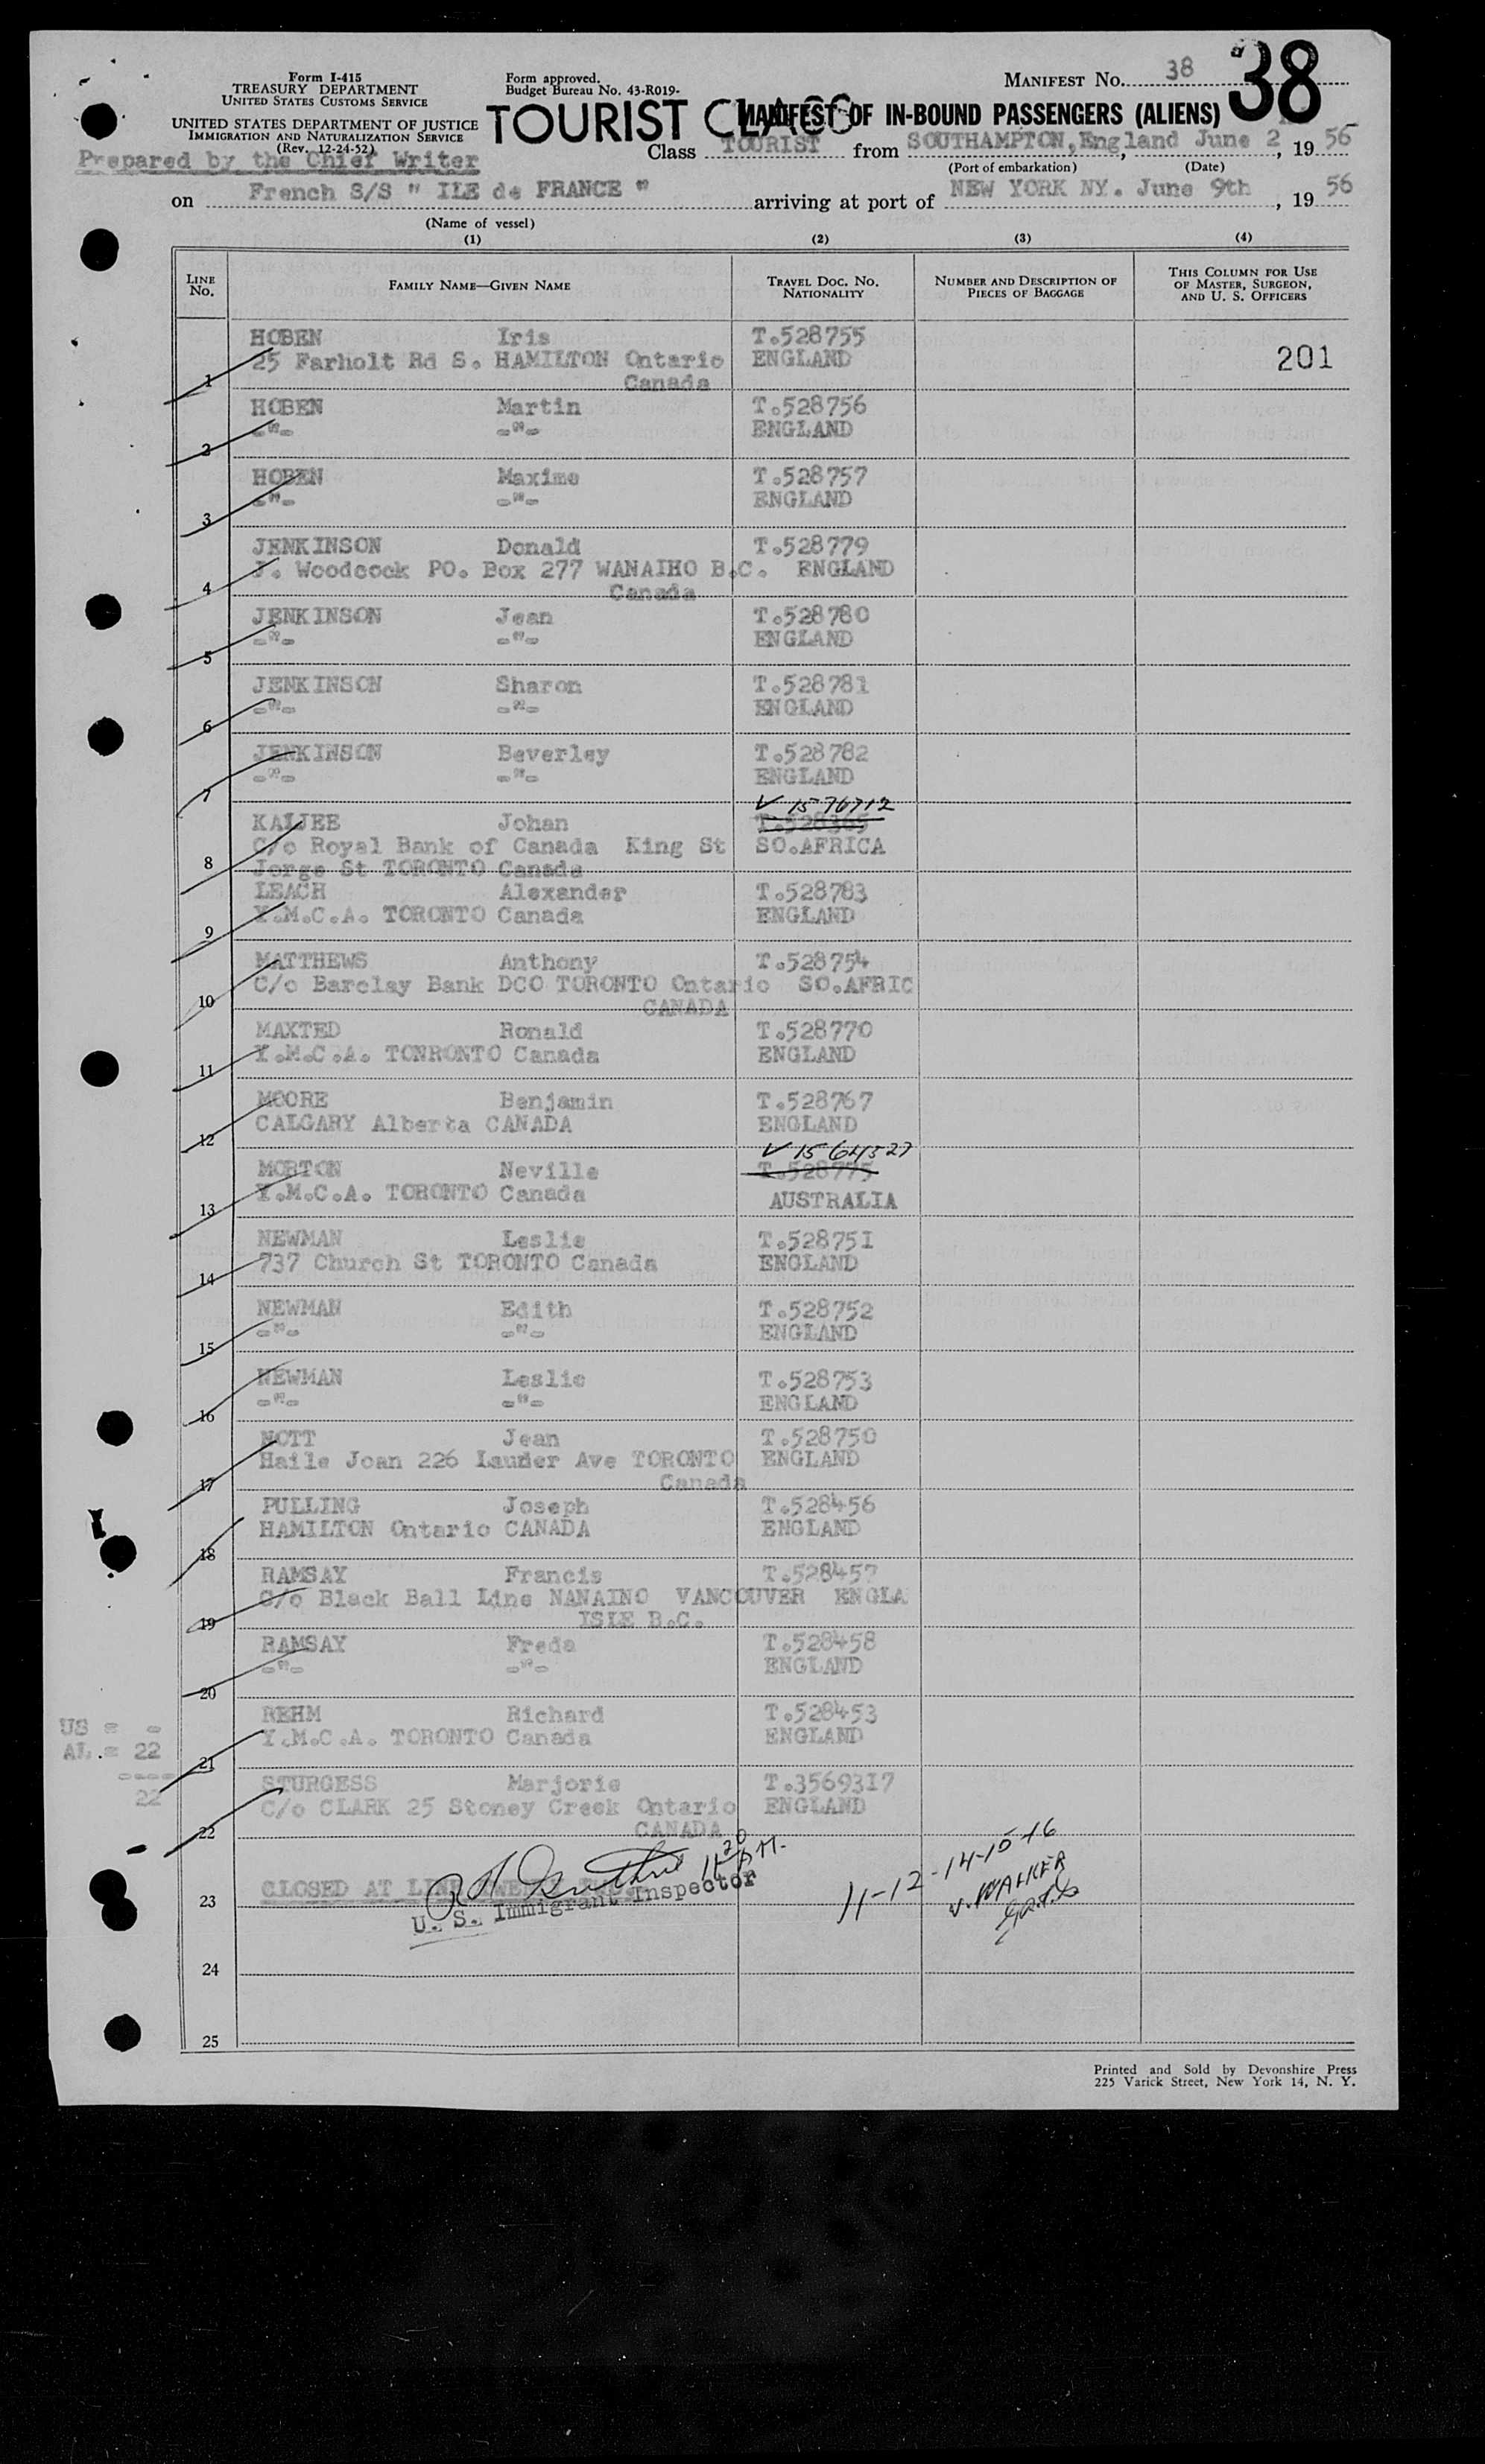 Form I-415
TREASURY DEPARTMENT
UNITED STATES CUSTOMS SERVICE
UNITED STATES DEPARTMENT OF JUSTICE
IMMIGRATION AND NATURALIZATION SERVICE
(Rev. 12-24-52)
Prepared by the Chief Writer
Form approved.
Budget Bureau No. 43-R019-
MANIFEST No. 38
38
TOURIST CLASS
MANIFEST OF IN-BOUND PASSENGERS (ALIENS)
Class TOURIST from SOUTHAMPTON, England June 2, 19 56
(Port of embarkation) (Date)
on French S/S " ILE de FRANCE " arriving at port of NEW YORK NY. June 9th, 19 56
(Name of vessel)
(1) (2) (3) (4)
LINE No. FAMILY NAME—GIVEN NAME TRAVEL DOC. No. NATIONALITY NUMBER AND DESCRIPTION OF PIECES OF BAGGAGE THIS COLUMN FOR USE OF MASTER, SURGEON, AND U. S. OFFICERS
HOBEN Iris T.528755
25 Farholt Rd S. HAMILTON Ontario ENGLAND 201
1 Canada
HOBEN Martin T.528756
-"- -"- ENGLAND
2
HOBEN Maxime T.528757
-"- -"- ENGLAND
3
JENKINSON Donald T.528779
J. Woodcock PO. Box 277 WANAIHO B.C. ENGLAND
4 Canada
JENKINSON Jean T.528780
-"- -"- ENGLAND
5
JENKINSON Sharon T.528781
-"- -"- ENGLAND
6
JENKINSON Beverley T.528782
-"- -"- ENGLAND
7
V 1576712
KAIJEE Johan T.528369
C/o Royal Bank of Canada King St SO.AFRICA
8 Jorge St TORONTO Canada
LEACH Alexander T.528783
Y.M.C.A. TORONTO Canada ENGLAND
9
MATTHEWS Anthony T.528754
C/o Barclay Bank DCO TORONTO Ontario SO.AFRIC
10 CANADA
MAXTED Ronald T.528770
Y.M.C.A. TONRONTO Canada ENGLAND
11
MOORE Benjamin T.528767
CALGARY Alberta CANADA ENGLAND
12
V 1564527
MORTON Neville T.528775
Y.M.C.A. TORONTO Canada AUSTRALIA
13
NEWMAN Leslie T.528751
737 Church St TORONTO Canada ENGLAND
14
NEWMAN Edith T.528752
-"- -"- ENGLAND
15
NEWMAN Leslie T.528753
-"- -"- ENGLAND
16
NOTT Jean T.528750
Haile Joan 226 Lauder Ave TORONTO ENGLAND
17 Canada
PULLING Joseph T.528456
HAMILTON Ontario CANADA ENGLAND
18
RAMSAY Francis T.528457
C/o Black Ball Line NANAINO VANCOUVER ENGLA
19 ISLE B.C.
RAMSAY Freda T.528458
-"- -"- ENGLAND
20
REHM Richard T.528453
Y.M.C.A. TORONTO Canada ENGLAND
21
US = -
AL.= 22
----
22
STURGESS Marjorie T.3569317
C/o CLARK 25 Stoney Creek Ontario ENGLAND
22 CANADA
23 CLOSED AT LINE TWENTY
U. S. Immigrant Inspector
11-12-14-15-16
V. WALKER
24
25
Printed and Sold by Devonshire Press
225 Varick Street, New York 14, N. Y.